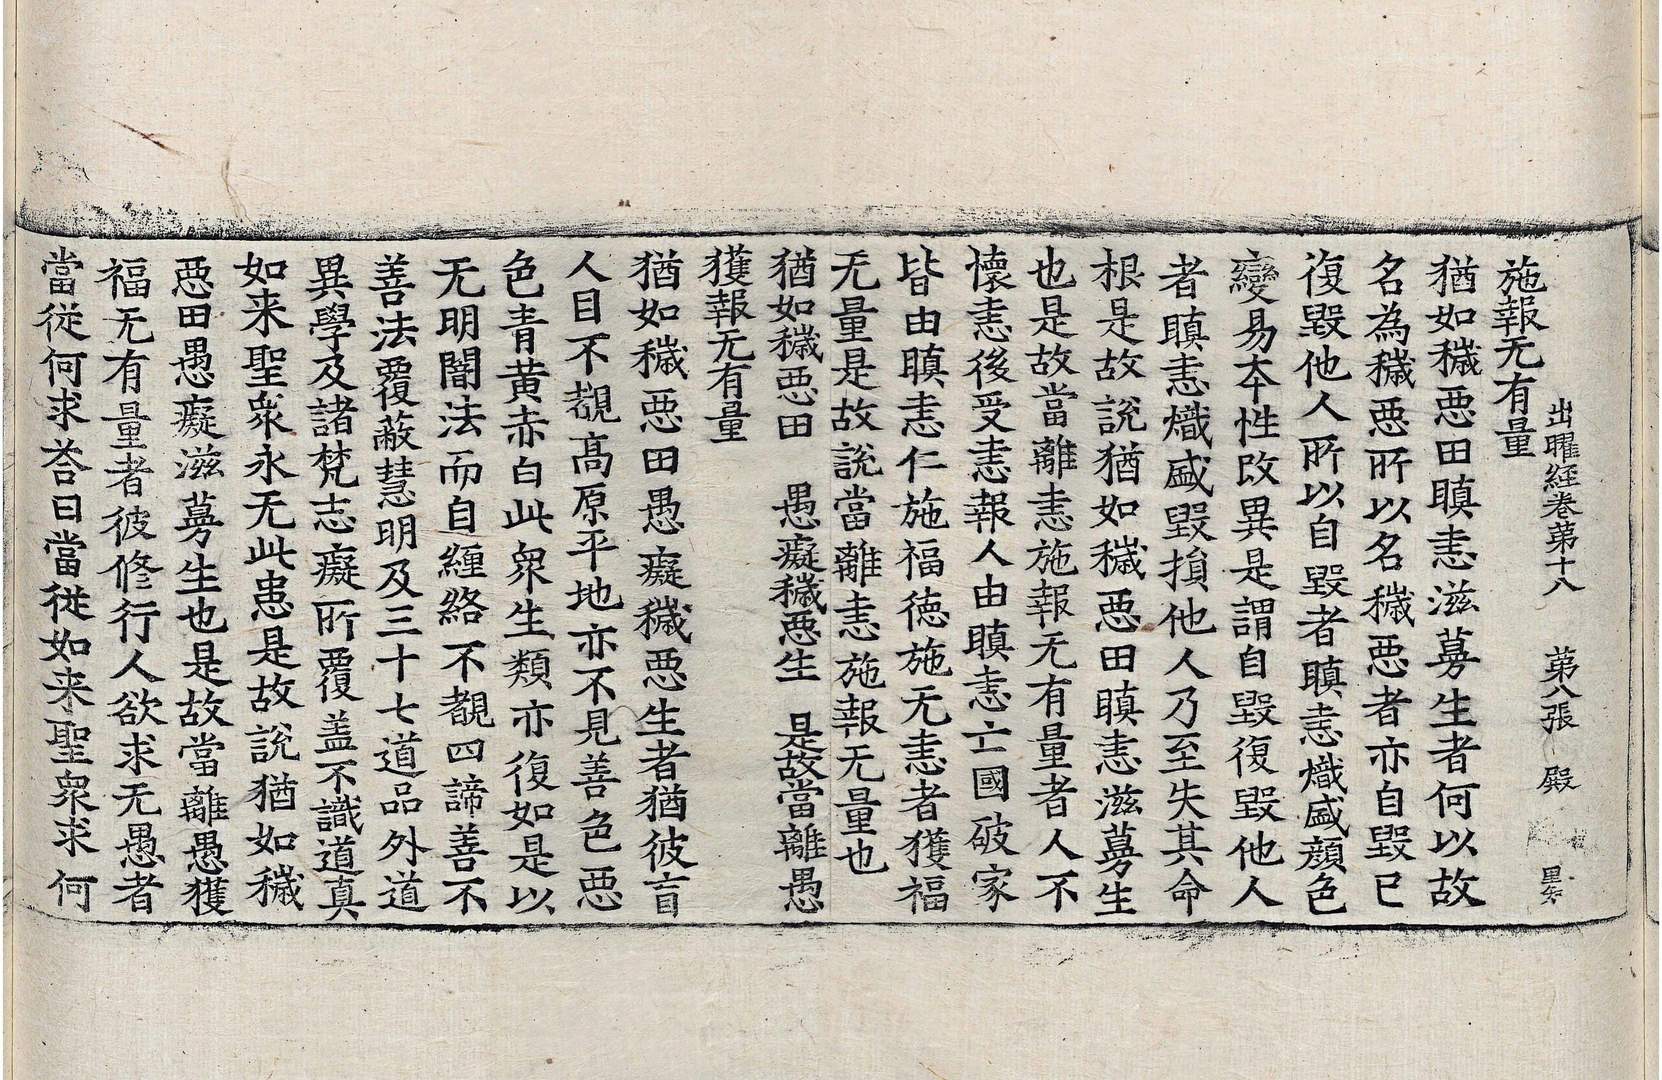 出曜經卷第十八　第八張　殿
施報无有量
猶如穢惡田瞋恚滋蔓生者何以故
名為穢惡所以名穢惡者亦自毀已
復毀他人所以自毀者瞋恚熾盛顏色
變易夲性改異是謂自毀復毀他人
者瞋恚熾盛毀損他人乃至失其命
根是故說猶如穢惡田瞋恚滋蔓生
也是故當離恚施報无有量者人不
懷恚後受恚報人由瞋恚亡國破家
皆由瞋恚仁施福德施无恚者獲福
无量是故說當離恚施報无量也
猶如穢惡田　愚癡穢惡生　是故當離愚
獲報无有量
猶如穢惡田愚癡穢惡生者猶彼盲
人目不覩高原平地亦不見善色惡
色青黃赤白此衆生類亦復如是以
无明闇法而自纏絡不覩四諦善不
善法覆蔽慧明及三十七道品外道
異學及諸梵志癡所覆盖不識道真
如来聖衆永无此患是故說猶如穢
惡田愚癡滋蔓生也是故當離愚獲
福无有量者彼修行人欲求无愚者
當從何求荅曰當從如来聖衆求何